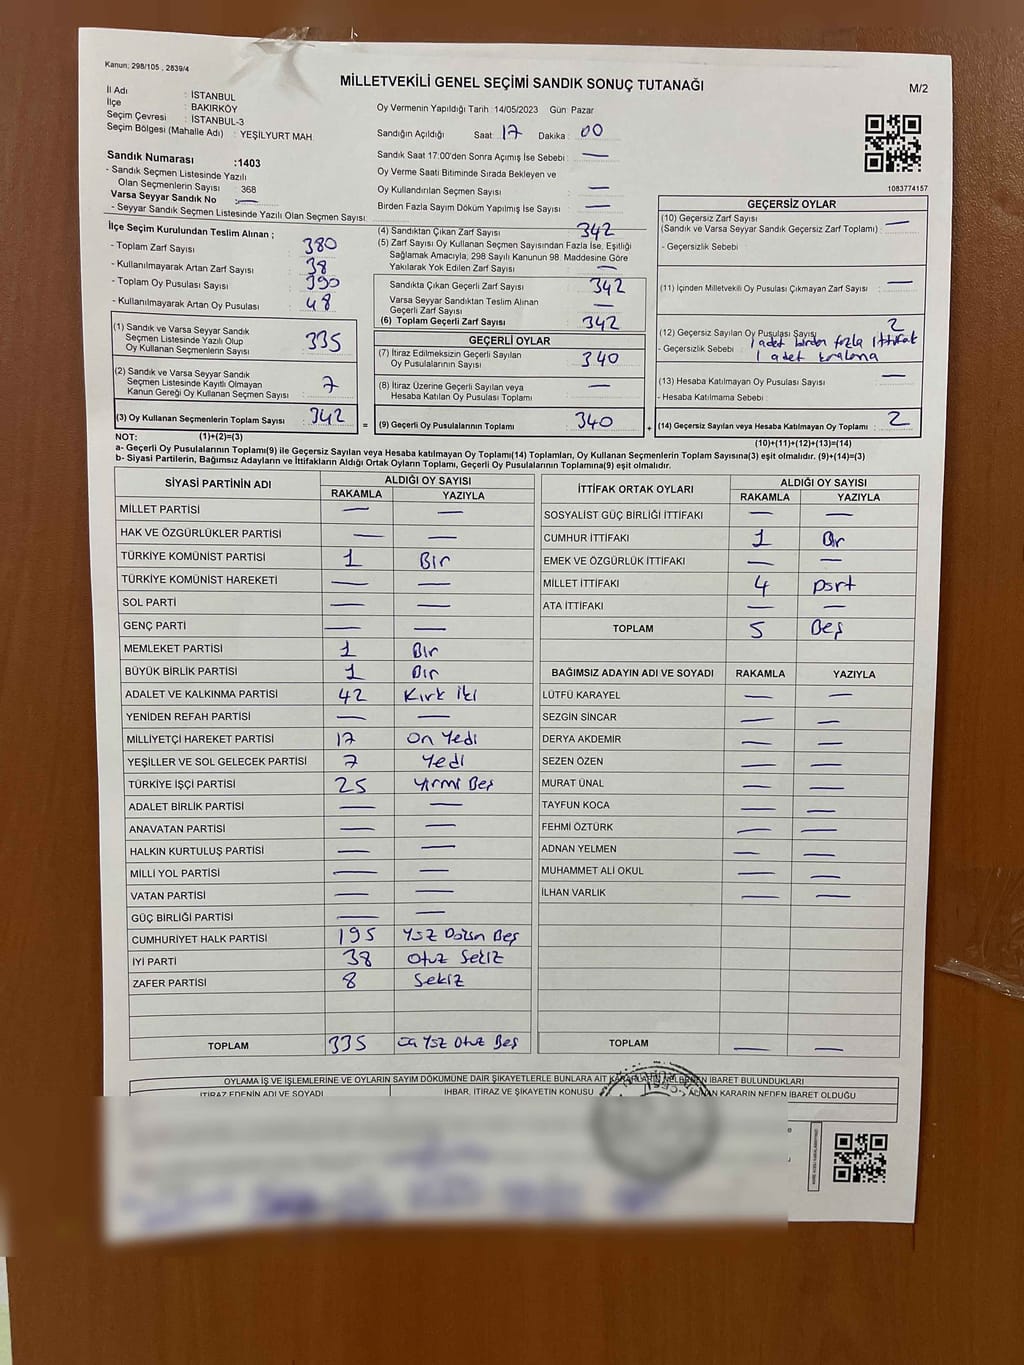 Kanun; 298/105 , 2839/4
MİLLETVEKİLİ GENEL SEÇİMİ SANDIK SONUÇ TUTANAĞI
M/2
İl Adı : İSTANBUL
İlçe : BAKIRKÖY
Seçim Çevresi : İSTANBUL-3
Seçim Bölgesi (Mahalle Adı) : YEŞİLYURT MAH
Sandık Numarası :1403
- Sandık Seçmen Listesinde Yazılı
Olan Seçmenlerin Sayısı : 368
Varsa Seyyar Sandık No : —
- Seyyar Sandık Seçmen Listesinde Yazılı Olan Seçmen Sayısı:
Oy Vermenin Yapıldığı Tarih : 14/05/2023 Gün : Pazar
Sandığın Açıldığı Saat : 17 Dakika : 00
Sandık Saat 17:00'den Sonra Açımış İse Sebebi : —
Oy Verme Saati Bitiminde Sırada Bekleyen ve
Oy Kullandırılan Seçmen Sayısı : —
Birden Fazla Sayım Döküm Yapılmış İse Sayısı : —
1083774157
İlçe Seçim Kurulundan Teslim Alınan ;
- Toplam Zarf Sayısı : 380
- Kullanılmayarak Artan Zarf Sayısı : 38
- Toplam Oy Pusulası Sayısı : 390
- Kullanılmayarak Artan Oy Pusulası : 48
(1) Sandık ve Varsa Seyyar Sandık
Seçmen Listesinde Yazılı Olup
Oy Kullanan Seçmenlerin Sayısı : 335
(2) Sandık ve Varsa Seyyar Sandık
Seçmen Listesinde Kayıtlı Olmayan
Kanun Gereği Oy Kullanan Seçmen Sayısı : 7
(3) Oy Kullanan Seçmenlerin Toplam Sayısı : 342
(4) Sandıktan Çıkan Zarf Sayısı : 342
(5) Zarf Sayısı Oy Kullanan Seçmen Sayısından Fazla İse, Eşitliği
Sağlamak Amacıyla, 298 Sayılı Kanunun 98. Maddesine Göre
Yakılarak Yok Edilen Zarf Sayısı : —
Sandıkta Çıkan Geçerli Zarf Sayısı : 342
Varsa Seyyar Sandıktan Teslim Alınan
Geçerli Zarf Sayısı : —
(6) Toplam Geçerli Zarf Sayısı : 342
GEÇERLİ OYLAR
(7) İtiraz Edilmeksizin Geçerli Sayılan
Oy Pusulalarının Sayısı : 340
(8) İtiraz Üzerine Geçerli Sayılan veya
Hesaba Katılan Oy Pusulası Toplamı : —
= (9) Geçerli Oy Pusulalarının Toplamı : 340
GEÇERSİZ OYLAR
(10) Geçersiz Zarf Sayısı : —
(Sandık ve Varsa Seyyar Sandık Geçersiz Zarf Toplamı)
- Geçersizlik Sebebi :
(11) İçinden Milletvekili Oy Pusulası Çıkmayan Zarf Sayısı : —
(12) Geçersiz Sayılan Oy Pusulası Sayısı : 2
- Geçersizlik Sebebi : 1 adet birden fazla ittifak
1 adet karalama
(13) Hesaba Katılmayan Oy Pusulası Sayısı : —
- Hesaba Katılmama Sebebi :
+ (14) Geçersiz Sayılan veya Hesaba Katılmayan Oy Toplamı : 2
NOT: (1)+(2)=(3)
(10)+(11)+(12)+(13)=(14)
a- Geçerli Oy Pusulasının Toplamı(9) ile Geçersiz Sayılan veya Hesaba Katılmayan Oy Toplamı(14) Toplamları, Oy Kullanan Seçmenlerin Toplam Sayısına(3) eşit olmalıdır. (9)+(14)=(3)
b- Siyasi Partilerin, Bağımsız Adayların ve İttifakların Aldığı Ortak Oyların Toplamı, Geçerli Oy Pusulalarının Toplamına(9) eşit olmalıdır.
SİYASİ PARTİNİN ADI ALDIĞI OY SAYISI
RAKAMLA YAZIYLA
MİLLET PARTİSİ — —
HAK VE ÖZGÜRLÜKLER PARTİSİ — —
TÜRKİYE KOMÜNİST PARTİSİ 1 Bir
TÜRKİYE KOMÜNİST HAREKETİ — —
SOL PARTİ — —
GENÇ PARTİ — —
MEMLEKET PARTİSİ 1 Bir
BÜYÜK BİRLİK PARTİSİ 1 Bir
ADALET VE KALKINMA PARTİSİ 42 Kırk İki
YENİDEN REFAH PARTİSİ — —
MİLLİYETÇİ HAREKET PARTİSİ 17 On Yedi
YEŞİLLER VE SOL GELECEK PARTİSİ 7 Yedi
TÜRKİYE İŞÇİ PARTİSİ 25 Yirmi Beş
ADALET BİRLİK PARTİSİ — —
ANAVATAN PARTİSİ — —
HALKIN KURTULUŞ PARTİSİ — —
MİLLİ YOL PARTİSİ — —
VATAN PARTİSİ — —
GÜÇ BİRLİĞİ PARTİSİ — —
CUMHURİYET HALK PARTİSİ 195 Yüz Doksan Beş
İYİ PARTİ 38 Otuz Sekiz
ZAFER PARTİSİ 8 Sekiz
TOPLAM 335 Üç Yüz Otuz Beş
İTTİFAK ORTAK OYLARI ALDIĞI OY SAYISI
RAKAMLA YAZIYLA
SOSYALİST GÜÇ BİRLİĞİ İTTİFAKI — —
CUMHUR İTTİFAKI 1 Bir
EMEK VE ÖZGÜRLÜK İTTİFAKI — —
MİLLET İTTİFAKI 4 Dört
ATA İTTİFAKI — —
TOPLAM 5 Beş
BAĞIMSIZ ADAYIN ADI VE SOYADI RAKAMLA YAZIYLA
LÜTFÜ KARAYEL — —
SEZGİN SİNCAR — —
DERYA AKDEMİR — —
SEZEN ÖZEN — —
MURAT ÜNAL — —
TAYFUN KOCA — —
FEHMİ ÖZTÜRK — —
ADNAN YELMEN — —
MUHAMMET ALİ OKUL — —
İLHAN VARLIK — —
TOPLAM — —
OYLAMA İŞ VE İŞLEMLERİNE VE OYLARIN SAYIM DÖKÜMÜNE DAİR ŞİKAYETLERLE BUNLARA AİT KARARLARIN NELERDEN İBARET BULUNDUKLARI
İTİRAZ EDENİN ADI VE SOYADI İHBAR, İTİRAZ VE ŞİKAYETİN KONUSU KARARIN NEDEN İBARET OLDUĞU